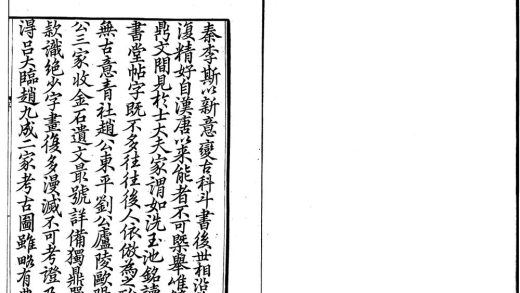 秦李斯以新意變古科斗書後世相沿
復精好自漢唐以来能者不可槩舉唯
鼎文間見於士大夫家謂如洗玉池銘讀
書堂帖字既不多往往後人依倣為之
無古意青社趙公東平劉公廬陵歐陽
公三家收金石遺文最號詳備獨鼎器
款識絕少字畫復多漫滅不可考證及
淂呂大臨趙九成二家考古圖雖略有典